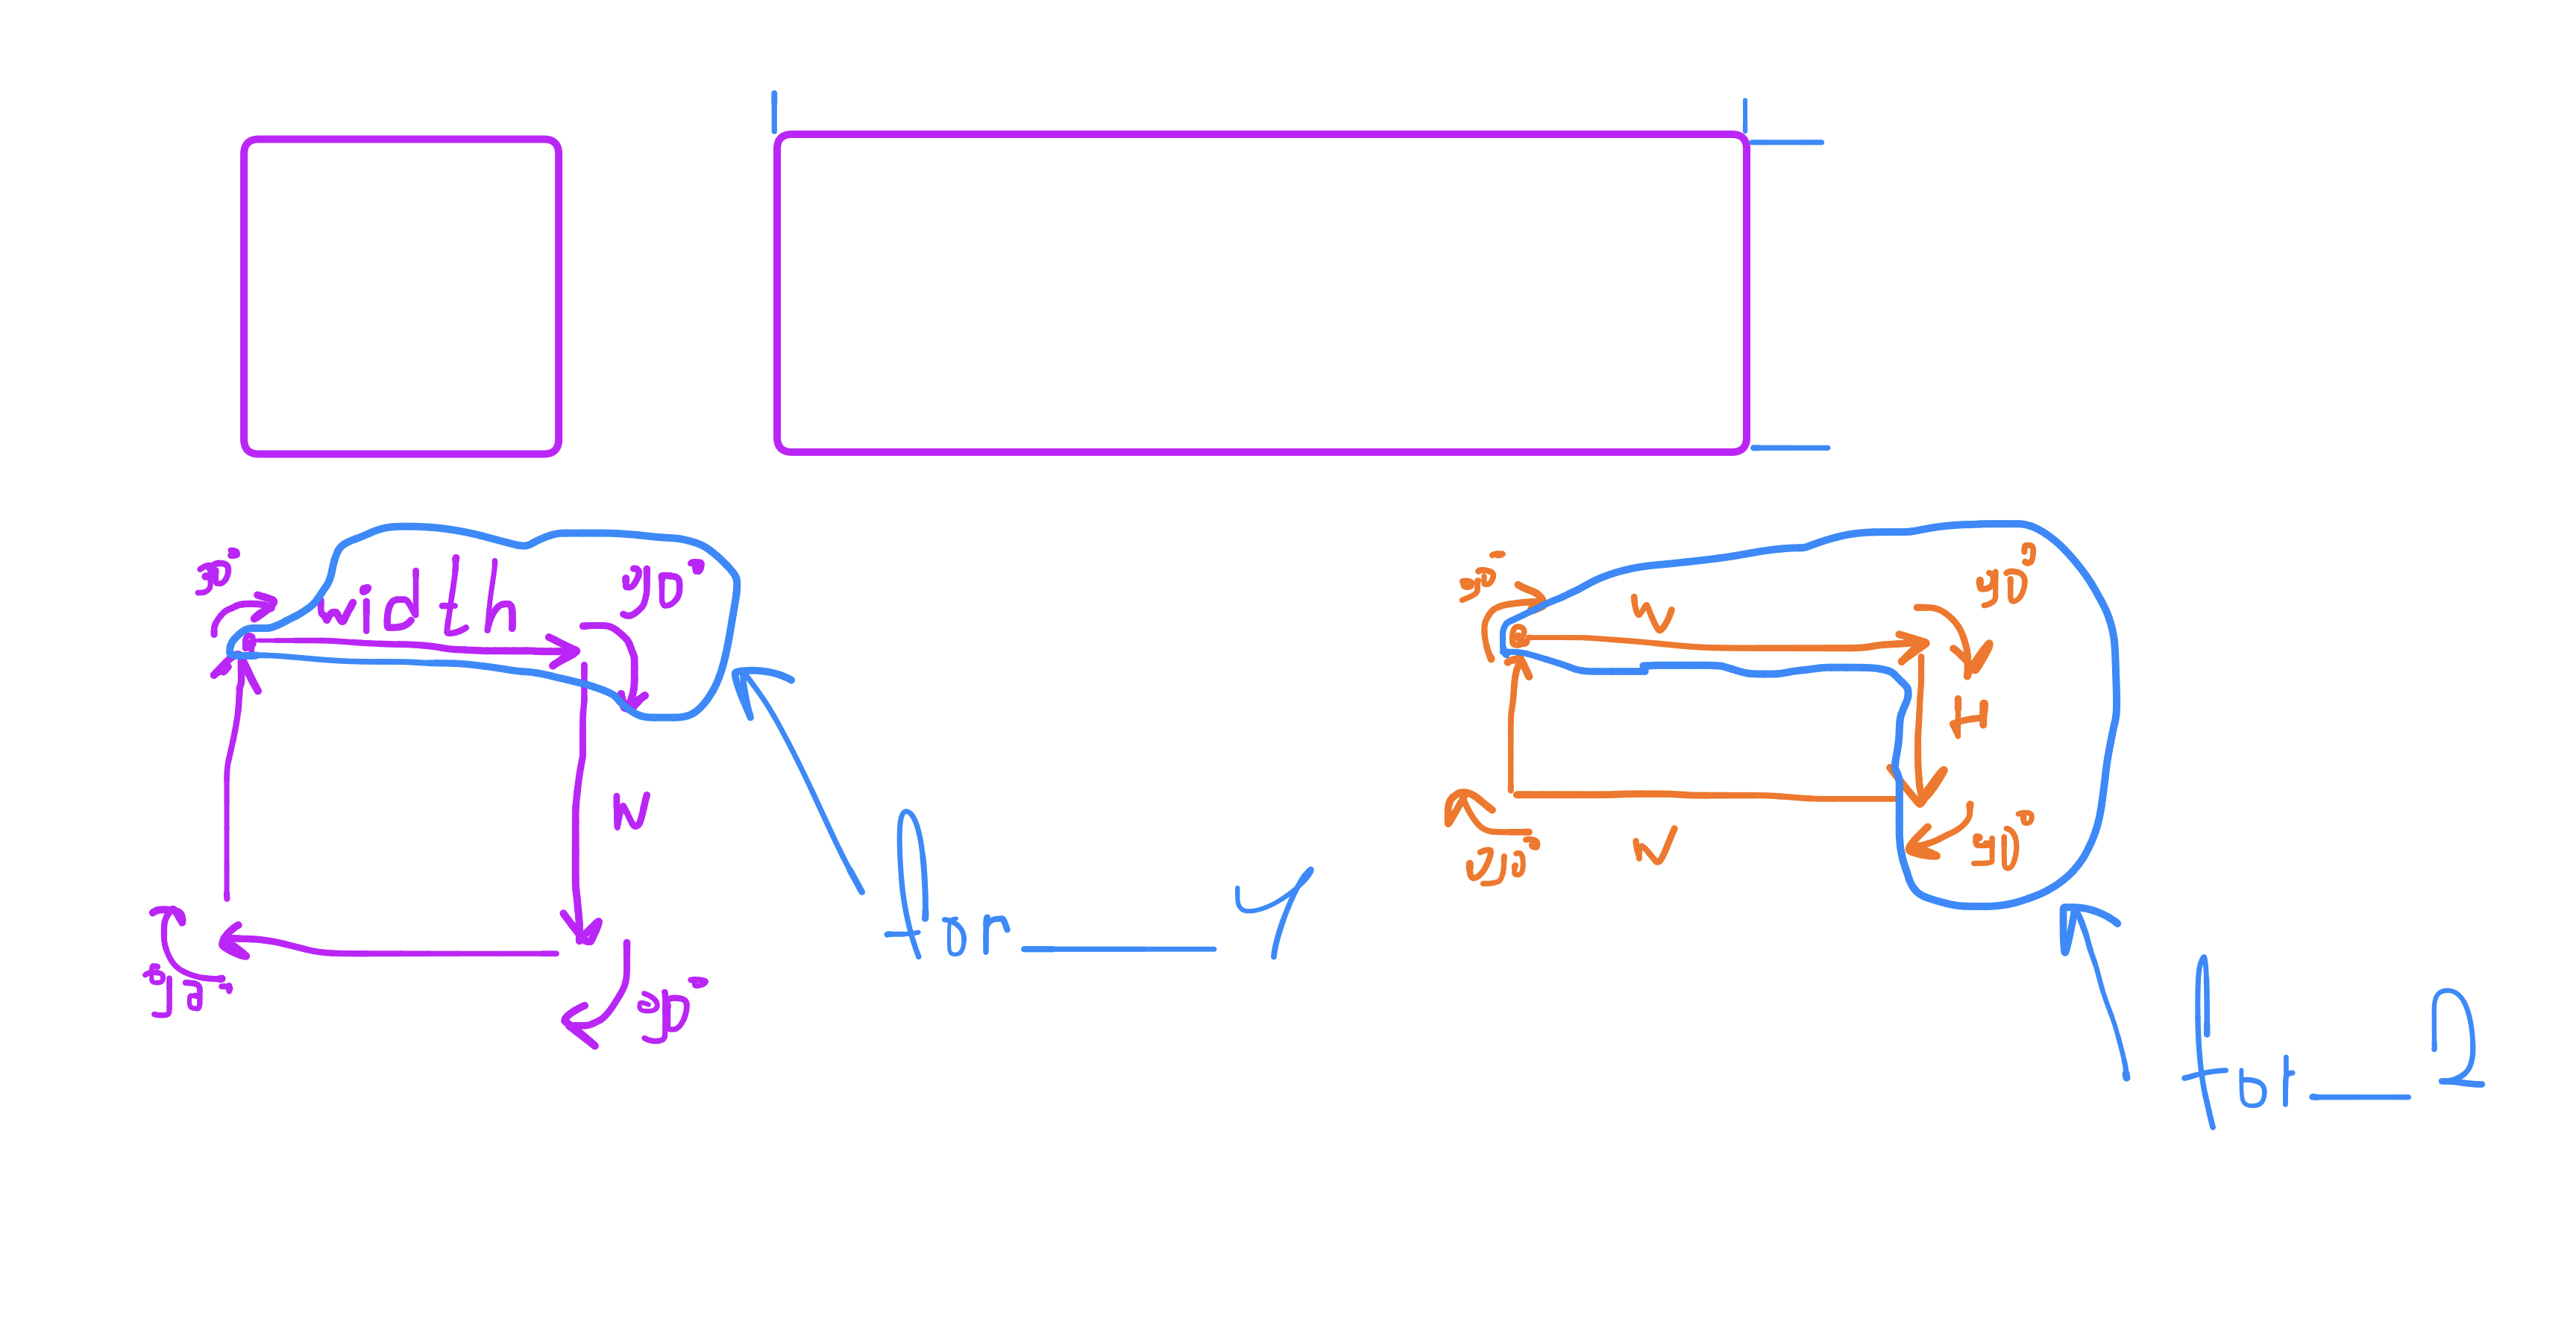 90°
width
90°
W
90°
90°
for 4
90°
W
90°
H
90°
90°
W
for 2